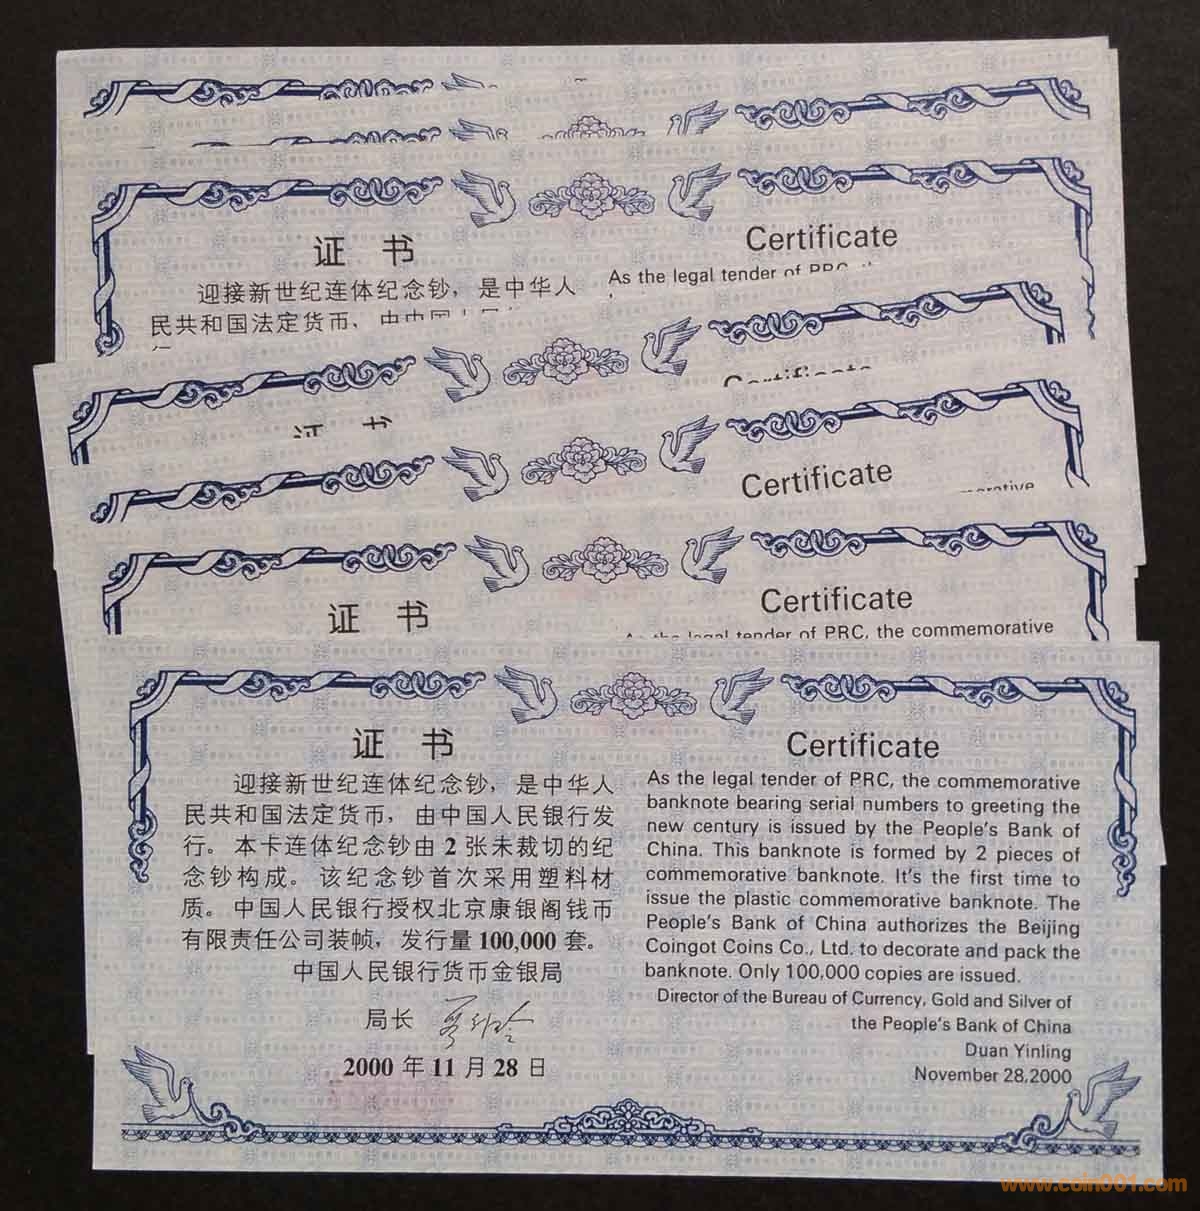 证 书
Certificate
迎接新世纪连体纪念钞，是中华人
民共和国法定货币，由中国人民
As the legal tender of PRC, the
证 书
Certificate
Certificate
morative
证 书
Certificate
As the legal tender of PRC, the commemorative
证 书
迎接新世纪连体纪念钞，是中华人
民共和国法定货币，由中国人民银行发
行。本卡连体纪念钞由 2 张未裁切的纪
念钞构成。该纪念钞首次采用塑料材
质。中国人民银行授权北京康银阁钱币
有限责任公司装帧，发行量 100,000 套。
中国人民银行货币金银局
局长
2000 年 11 月 28 日
Certificate
As the legal tender of PRC, the commemorative
banknote bearing serial numbers to greeting the
new century is issued by the People's Bank of
China. This banknote is formed by 2 pieces of
commemorative banknote. It's the first time to
issue the plastic commemorative banknote. The
People's Bank of China authorizes the Beijing
Coingot Coins Co., Ltd. to decorate and pack the
banknote. Only 100,000 copies are issued.
Director of the Bureau of Currency, Gold and Silver of
the People's Bank of China
Duan Yinling
November 28,2000
www.coin001.com